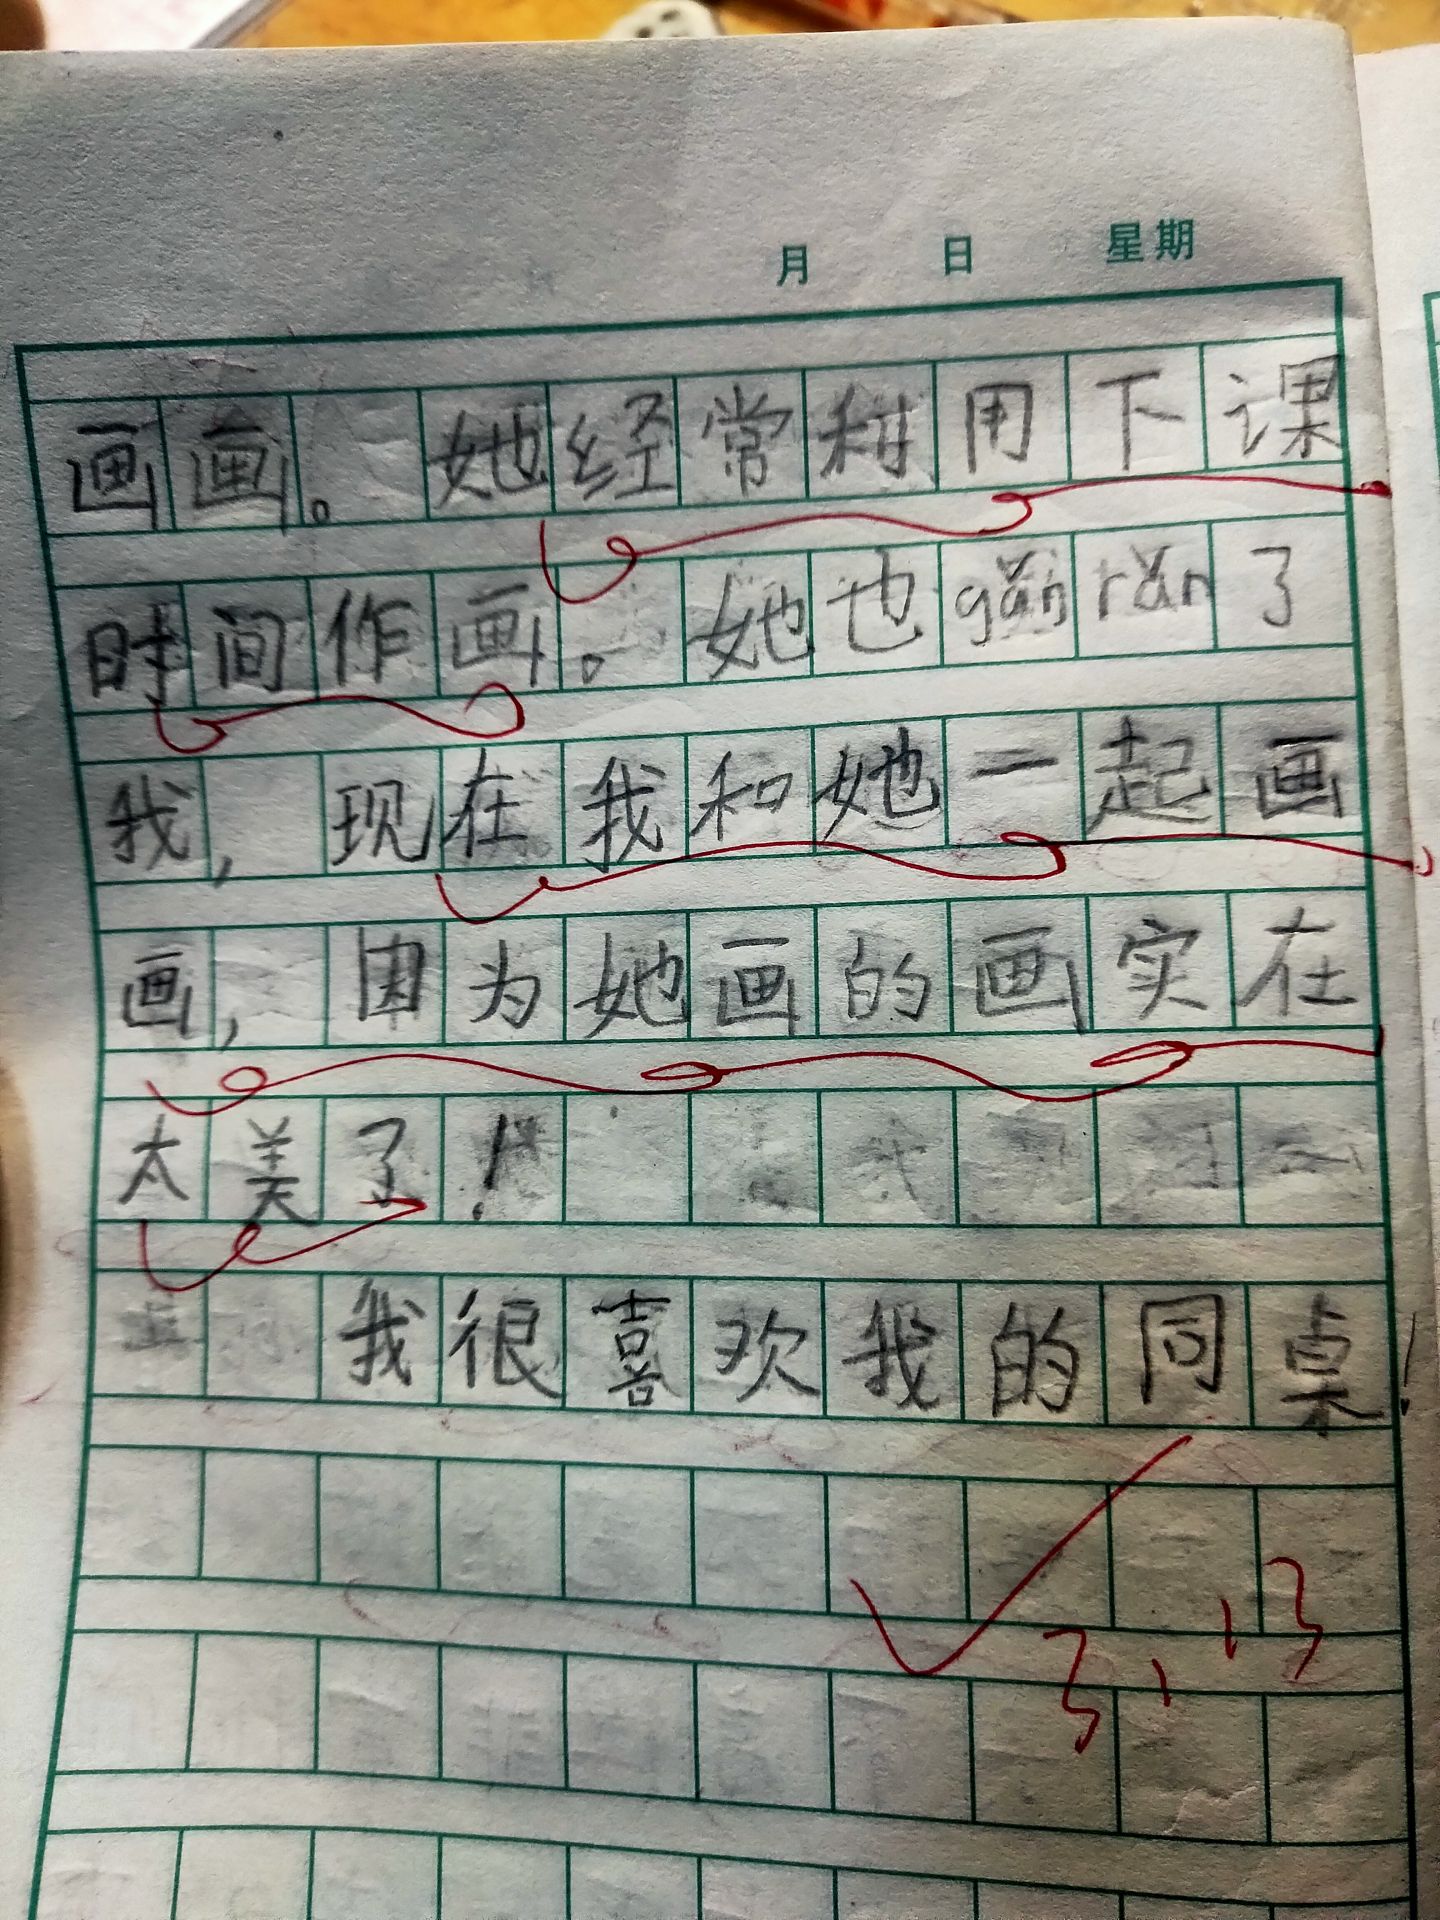 月 日 星期
画画。她经常利用下课
时间作画。她也gǎn rǎn了
我,现在我和她一起画
画,因为她画的画实在
太美了!
我很喜欢我的同桌!
3,13